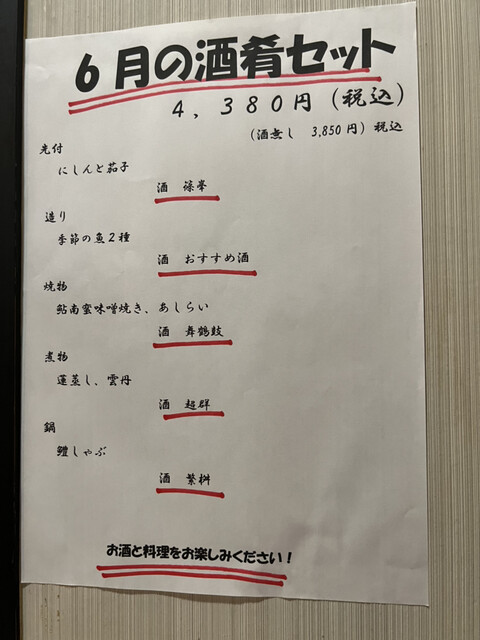 6月の酒肴セット
4,380円(税込)
(酒無し 3,850円)税込
先付
にしんと茄子
酒 篠峯
造り
季節の魚2種
酒 おすすめ酒
焼物
鮎南蛮味噌焼き、あしらい
酒 舞鶴鼓
煮物
蓮蒸し、雲丹
酒 超群
鍋
鱧しゃぶ
酒 繁桝
お酒と料理をお楽しみください!